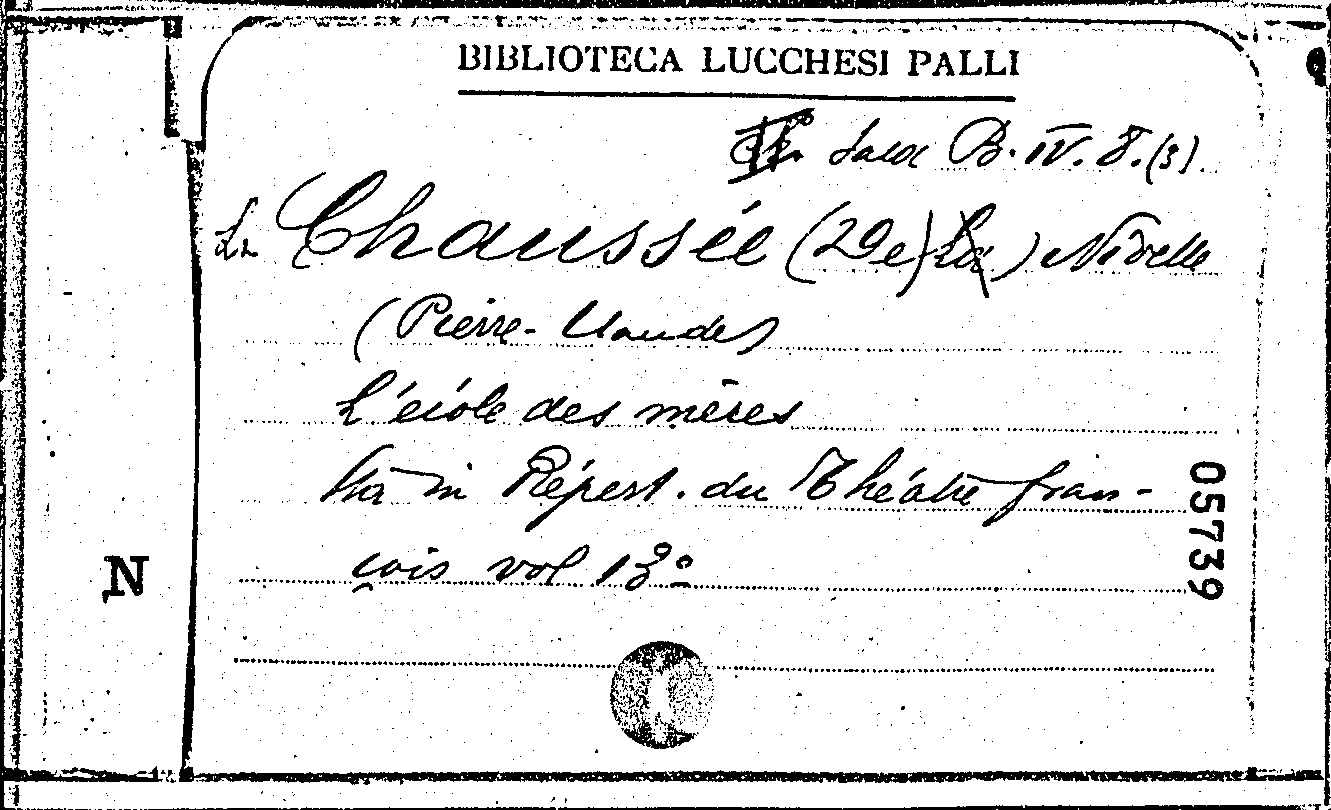 BIBLIOTECA LUCCHESI PALLI
Sala B. IV. 8. (3).
La Chaussée (De) La) Nivelle
(Pierre-Claude)
L'école des mères
Sta in Répert. du Théatre fran-
çois vol 13º
05739
N